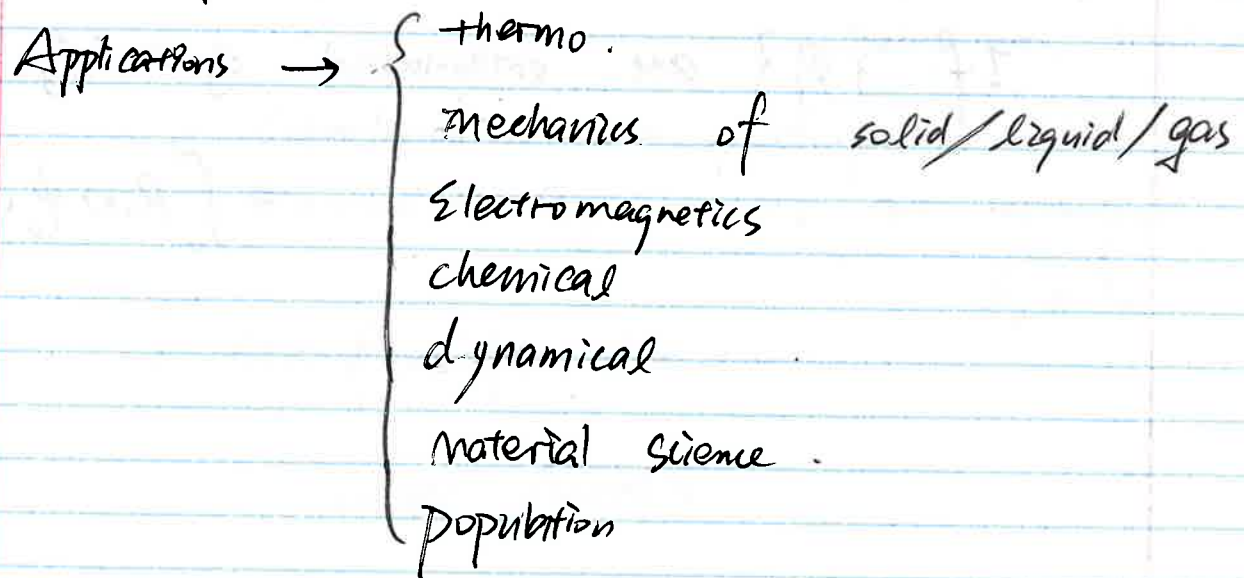 Applications → { thermo.
mechanics of solid/liquid/gas
Electromagnetics
chemical
dynamical
material science.
population